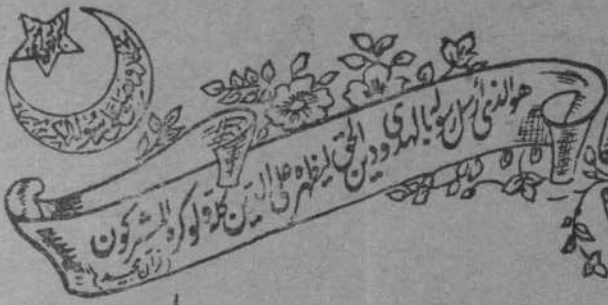 هو الذي أرسل رسوله بالهدى ودين الحق ليظهره على الدين كله ولو كره المشركون